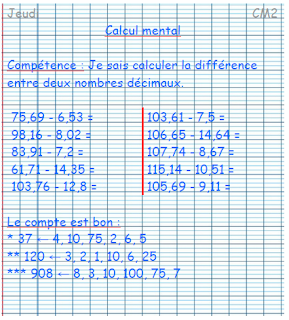 Jeudi CM2
Calcul mental
Compétence : Je sais calculer la différence
entre deux nombres décimaux.
75,69 - 6,53 = 103,61 - 7,5 =
98,16 - 8,02 = 106,65 - 14,64 =
83,91 - 7,2 = 107,74 - 8,67 =
61,71 - 14,35 = 115,14 - 10,51 =
103,76 - 12,8 = 105,69 - 9,11 =
Le compte est bon :
* 37 ← 4, 10, 75, 2, 6, 5
** 120 ← 3, 2, 1, 10, 6, 25
*** 908 ← 8, 3, 10, 100, 75, 7